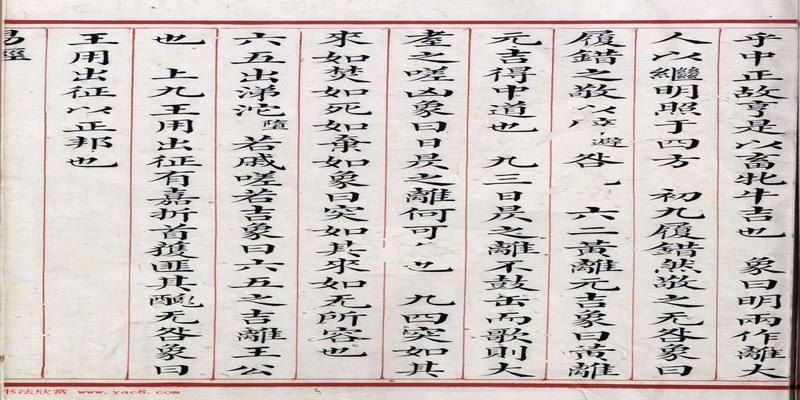 乎中正故亨是以畜牝牛吉也　象曰明兩作離大
人以繼明照于四方　初九履錯然敬之无咎象曰
履錯之敬以辟避咎也　六二黃離元吉象曰黃離
元吉得中道也　九三日昃之離不鼓缶而歌則大
耋之嗟凶象曰日昃之離何可也　九四突如其
來如焚如死如棄如象曰突如其來如无所容也
六五出涕沱隨若戚嗟若吉象曰六五之吉離王公
也　上九王用出征有嘉折首獲匪其醜无咎象曰
王用出征以正邦也
易經
书法欣赏 www.yac8.com